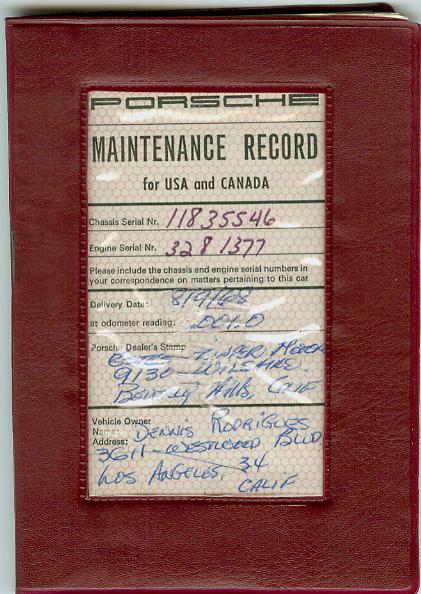 PORSCHE
MAINTENANCE RECORD
for USA and CANADA
Chassis Serial Nr. 11835546
Engine Serial Nr. 3281377
Please include the chassis and engine serial numbers in
your correspondence on matters pertaining to this car
Delivery Date: 8/9/68
at odometer reading: 001.0
Porsche Dealer's Stamp
9130 - WILSHIRE.
Beverly Hills, Calif
Vehicle Owner
Name: DENNIS RODRIGUES
Address: 3611 - WESTWOOD BLVD
LOS ANGELES, 34
CALIF